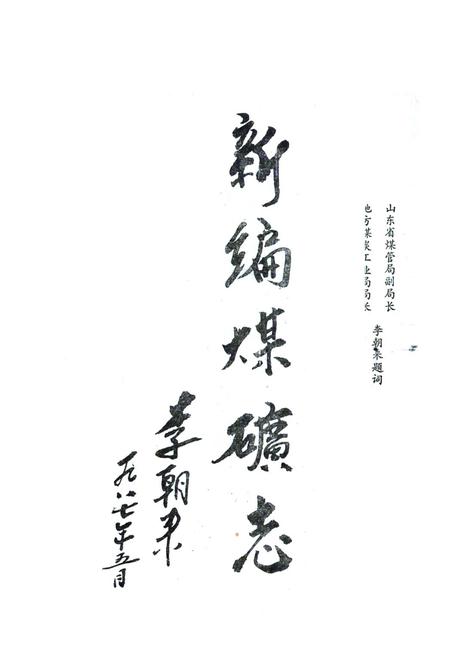 山东省煤管局副局长
地方煤炭工业局局长
李朝来题词
新编煤礦志
李朝来
一九八七年五月